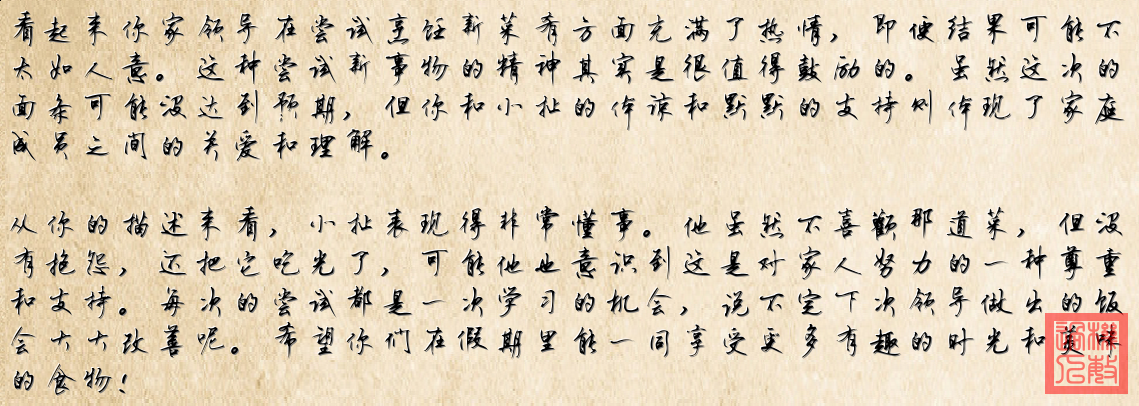 看起来你家领导在尝试烹饪新菜肴方面充满了热情，即便结果可能不
太如人意。这种尝试新事物的精神其实是很值得鼓励的。虽然这次的
面条可能没达到预期，但你和小扯的体谅和默默的支持则体现了家庭
成员之间的关爱和理解。
从你的描述来看，小扯表现得非常懂事。他虽然不喜欢那道菜，但没
有抱怨，还把它吃光了，可能他也意识到这是对家人努力的一种尊重
和支持。每次的尝试都是一次学习的机会，说不定下次领导做出的饭
会大大改善呢。希望你们在假期里能一同享受更多有趣的时光和美味
的食物！